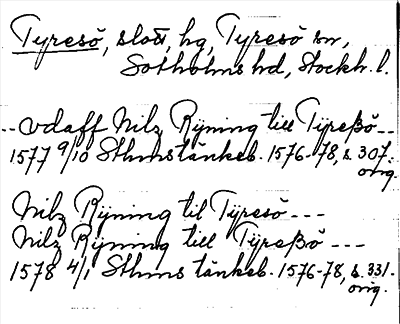 Tyresö, slott, hg, Tyresö sn,
Sotholms hd, Stockh. l.
-- vdaff Nilz Ryning till Tÿreßö --
1577 9/10 Sthms tänkeb. 1576-78, s. 307.
orig.
Nilz Ryning til Tyresö ---
Nilz Ryning till Tÿreßö ---
1578 4/1 Sthms tänkeb. 1576-78, s. 331.
orig.